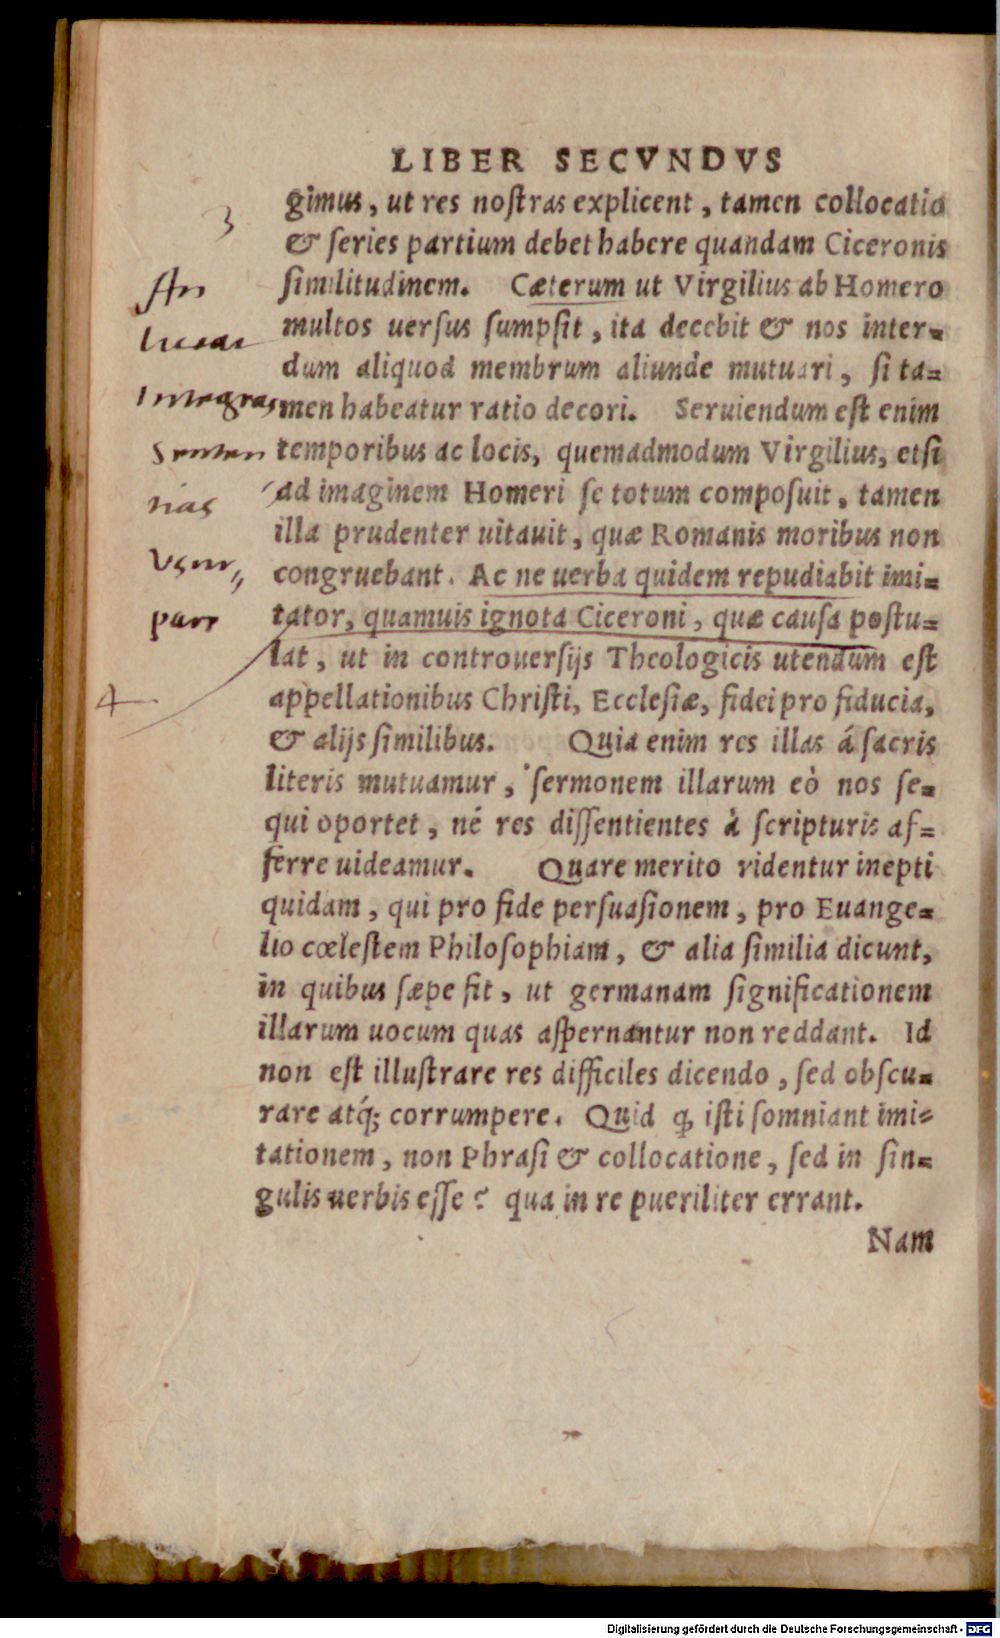 LIBER SECVNDVS
gimus, ut res nostras explicent, tamen collocatio
& series partium debet habere quandam Ciceronis
similitudinem. Cæterum ut Virgilius ab Homero
multos uersus sumpsit, ita decebit & nos inter-
dum aliquod membrum aliunde mutuari, si ta-
men habeatur ratio decori. Seruiendum est enim
temporibus ac locis, quemadmodum Virgilius, etsi
ad imaginem Homeri se totum composuit, tamen
illa prudenter uitauit, quæ Romanis moribus non
congruebant. Ac ne uerba quidem repudiabit imi-
tator, quamuis ignota Ciceroni, quæ causa postu-
lat, ut in controuersijs Theologicis utendum est
appellationibus Christi, Ecclesiæ, fidei pro fiducia,
& alijs similibus. Quia enim res illas á sacris
literis mutuamur, sermonem illarum eò nos se-
qui oportet, né res dissentientes à scripturis af-
ferre uideamur. Quare merito videntur inepti
quidam, qui pro fide persuasionem, pro Euange-
lio cœlestem Philosophiam, & alia similia dicunt,
in quibus sæpe fit, ut germanam significationem
illarum uocum quas aspernantur non reddant. Id
non est illustrare res difficiles dicendo, sed obscu-
rare atq́; corrumpere. Quid ꝙ isti somniant imi-
tationem, non Phrasi & collocatione, sed in sin-
gulis uerbis esse? qua in re pueriliter errant.
Nam
3
An
liceat
Integras
Senten
tias
Vsur,,
pare
4
Digitalisierung gefördert durch die Deutsche Forschungsgemeinschaft - DFG